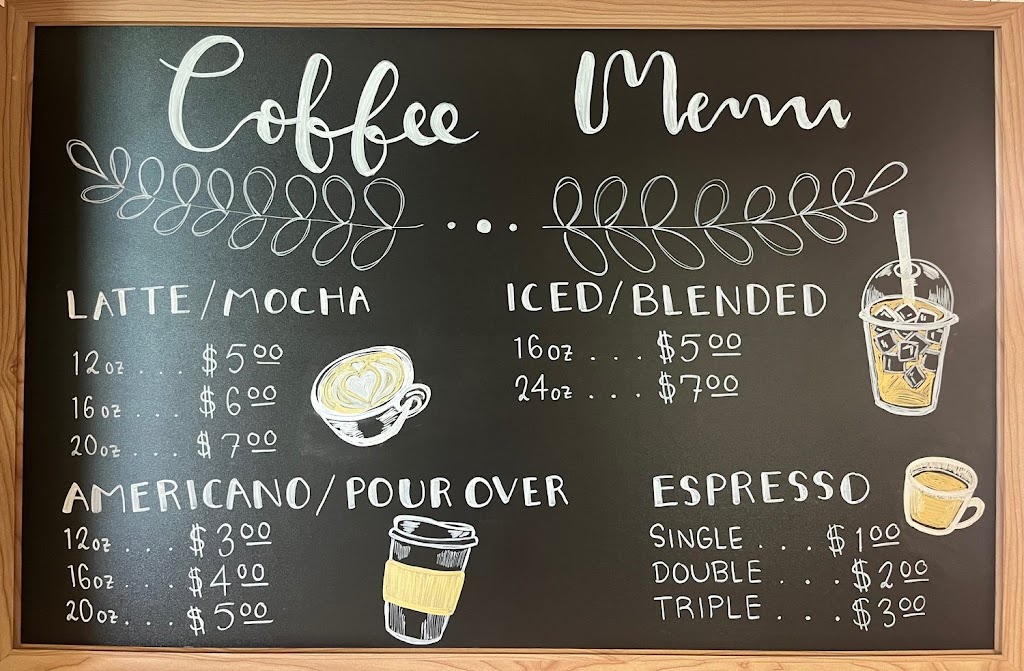 Coffee Menu
LATTE/MOCHA
12oz . . . $5.00
16oz . . . $6.00
20oz . . . $7.00
ICED/BLENDED
16oz . . . $5.00
24oz . . . $7.00
AMERICANO/POUR OVER
12oz . . . $3.00
16oz . . . $4.00
20oz . . . $5.00
ESPRESSO
SINGLE . . . $1.00
DOUBLE . . . $2.00
TRIPLE . . . $3.00